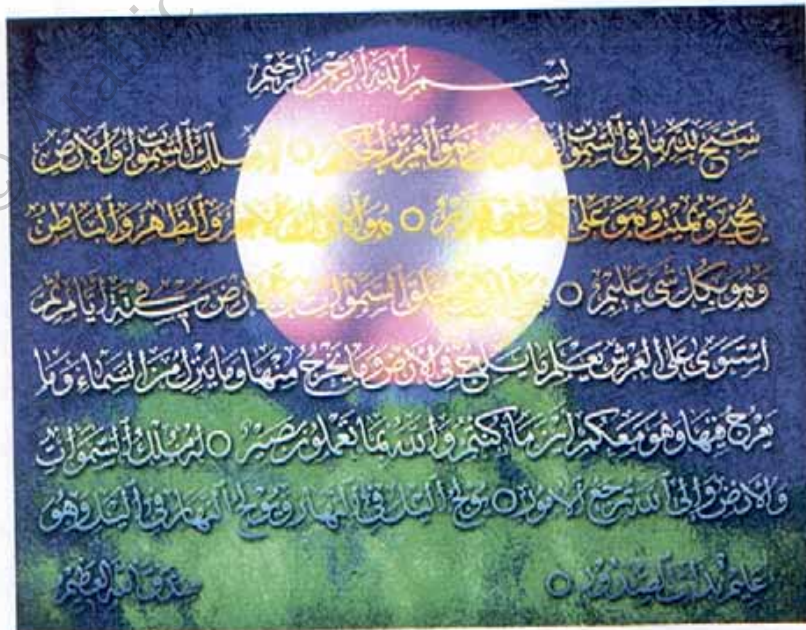 بِسْمِ ٱللَّهِ ٱلرَّحْمَٰنِ ٱلرَّحِيمِ
سبح لله ما في السموات والأرض وهو العزيز الحكيم ○ له ملك السموات والأرض
يحيي ويميت وهو على كل شيء قدير ○ هو الأول والآخر والظاهر والباطن
وهو بكل شيء عليم ○ هو الذي خلق السموات والأرض في ستة أيام ثم
استوى على العرش يعلم ما يلج في الأرض وما يخرج منها وما ينزل من السماء وما
يعرج فيها وهو معكم أين ما كنتم والله بما تعملون بصير ○ له ملك السموات
والأرض وإلى الله ترجع الأمور ○ يولج الليل في النهار ويولج النهار في الليل وهو
عليم بذات الصدور ○ صدق الله العظيم